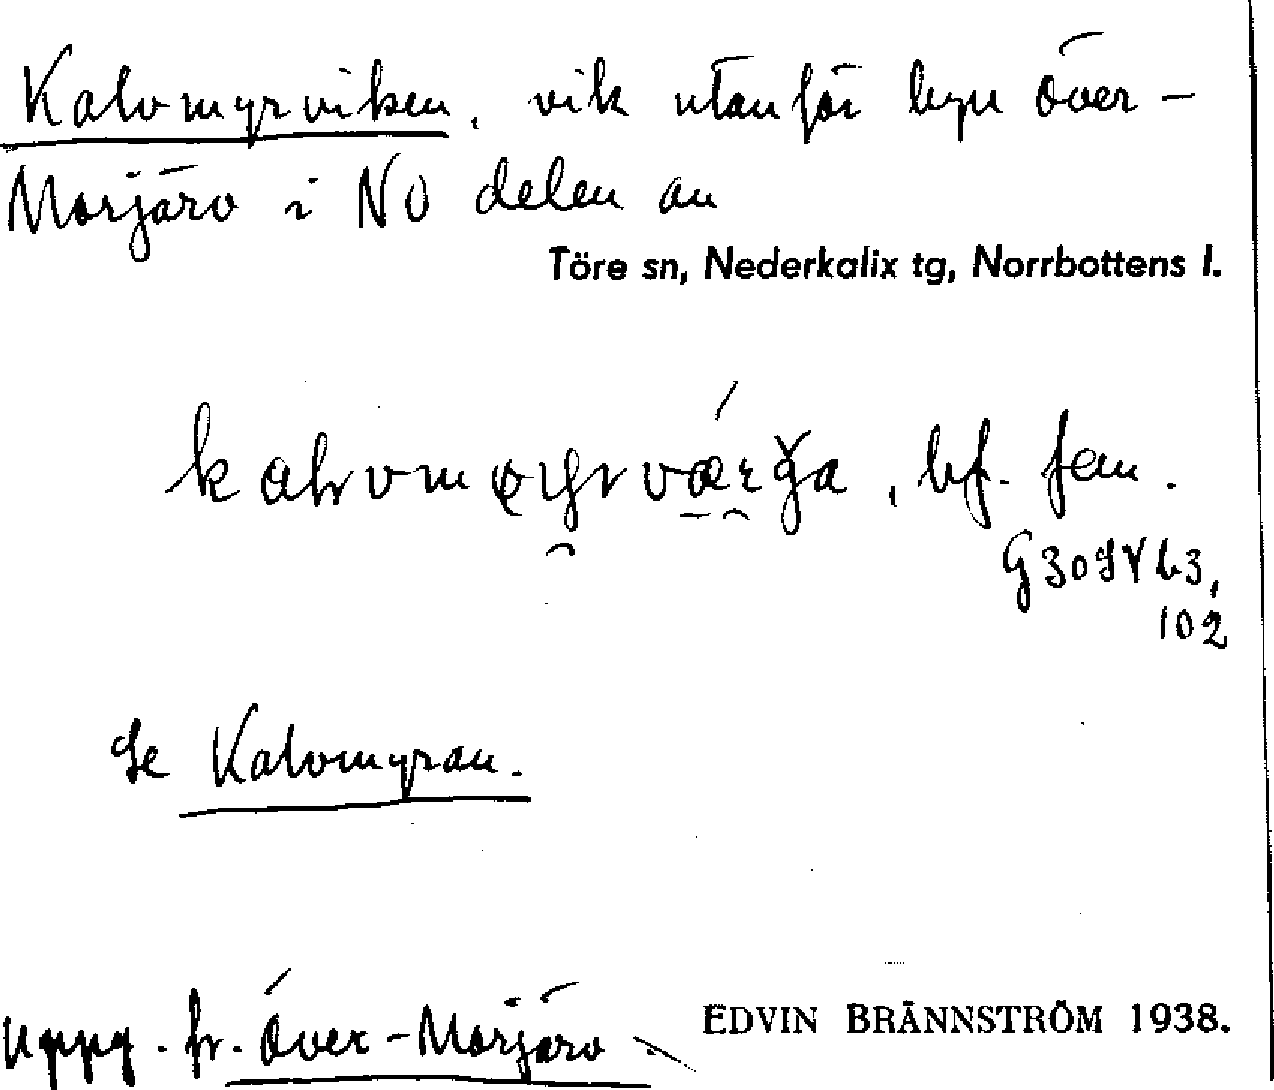 Kalvmyrviken, vik utanför byn Över-
Morjärv i NO delen av
Töre sn, Nederkalix tg, Norrbottens l.
bf. fem.
102
Se Kalvmyran.
Uppg. fr. Över-Morjärv
EDVIN BRÄNNSTRÖM 1938.